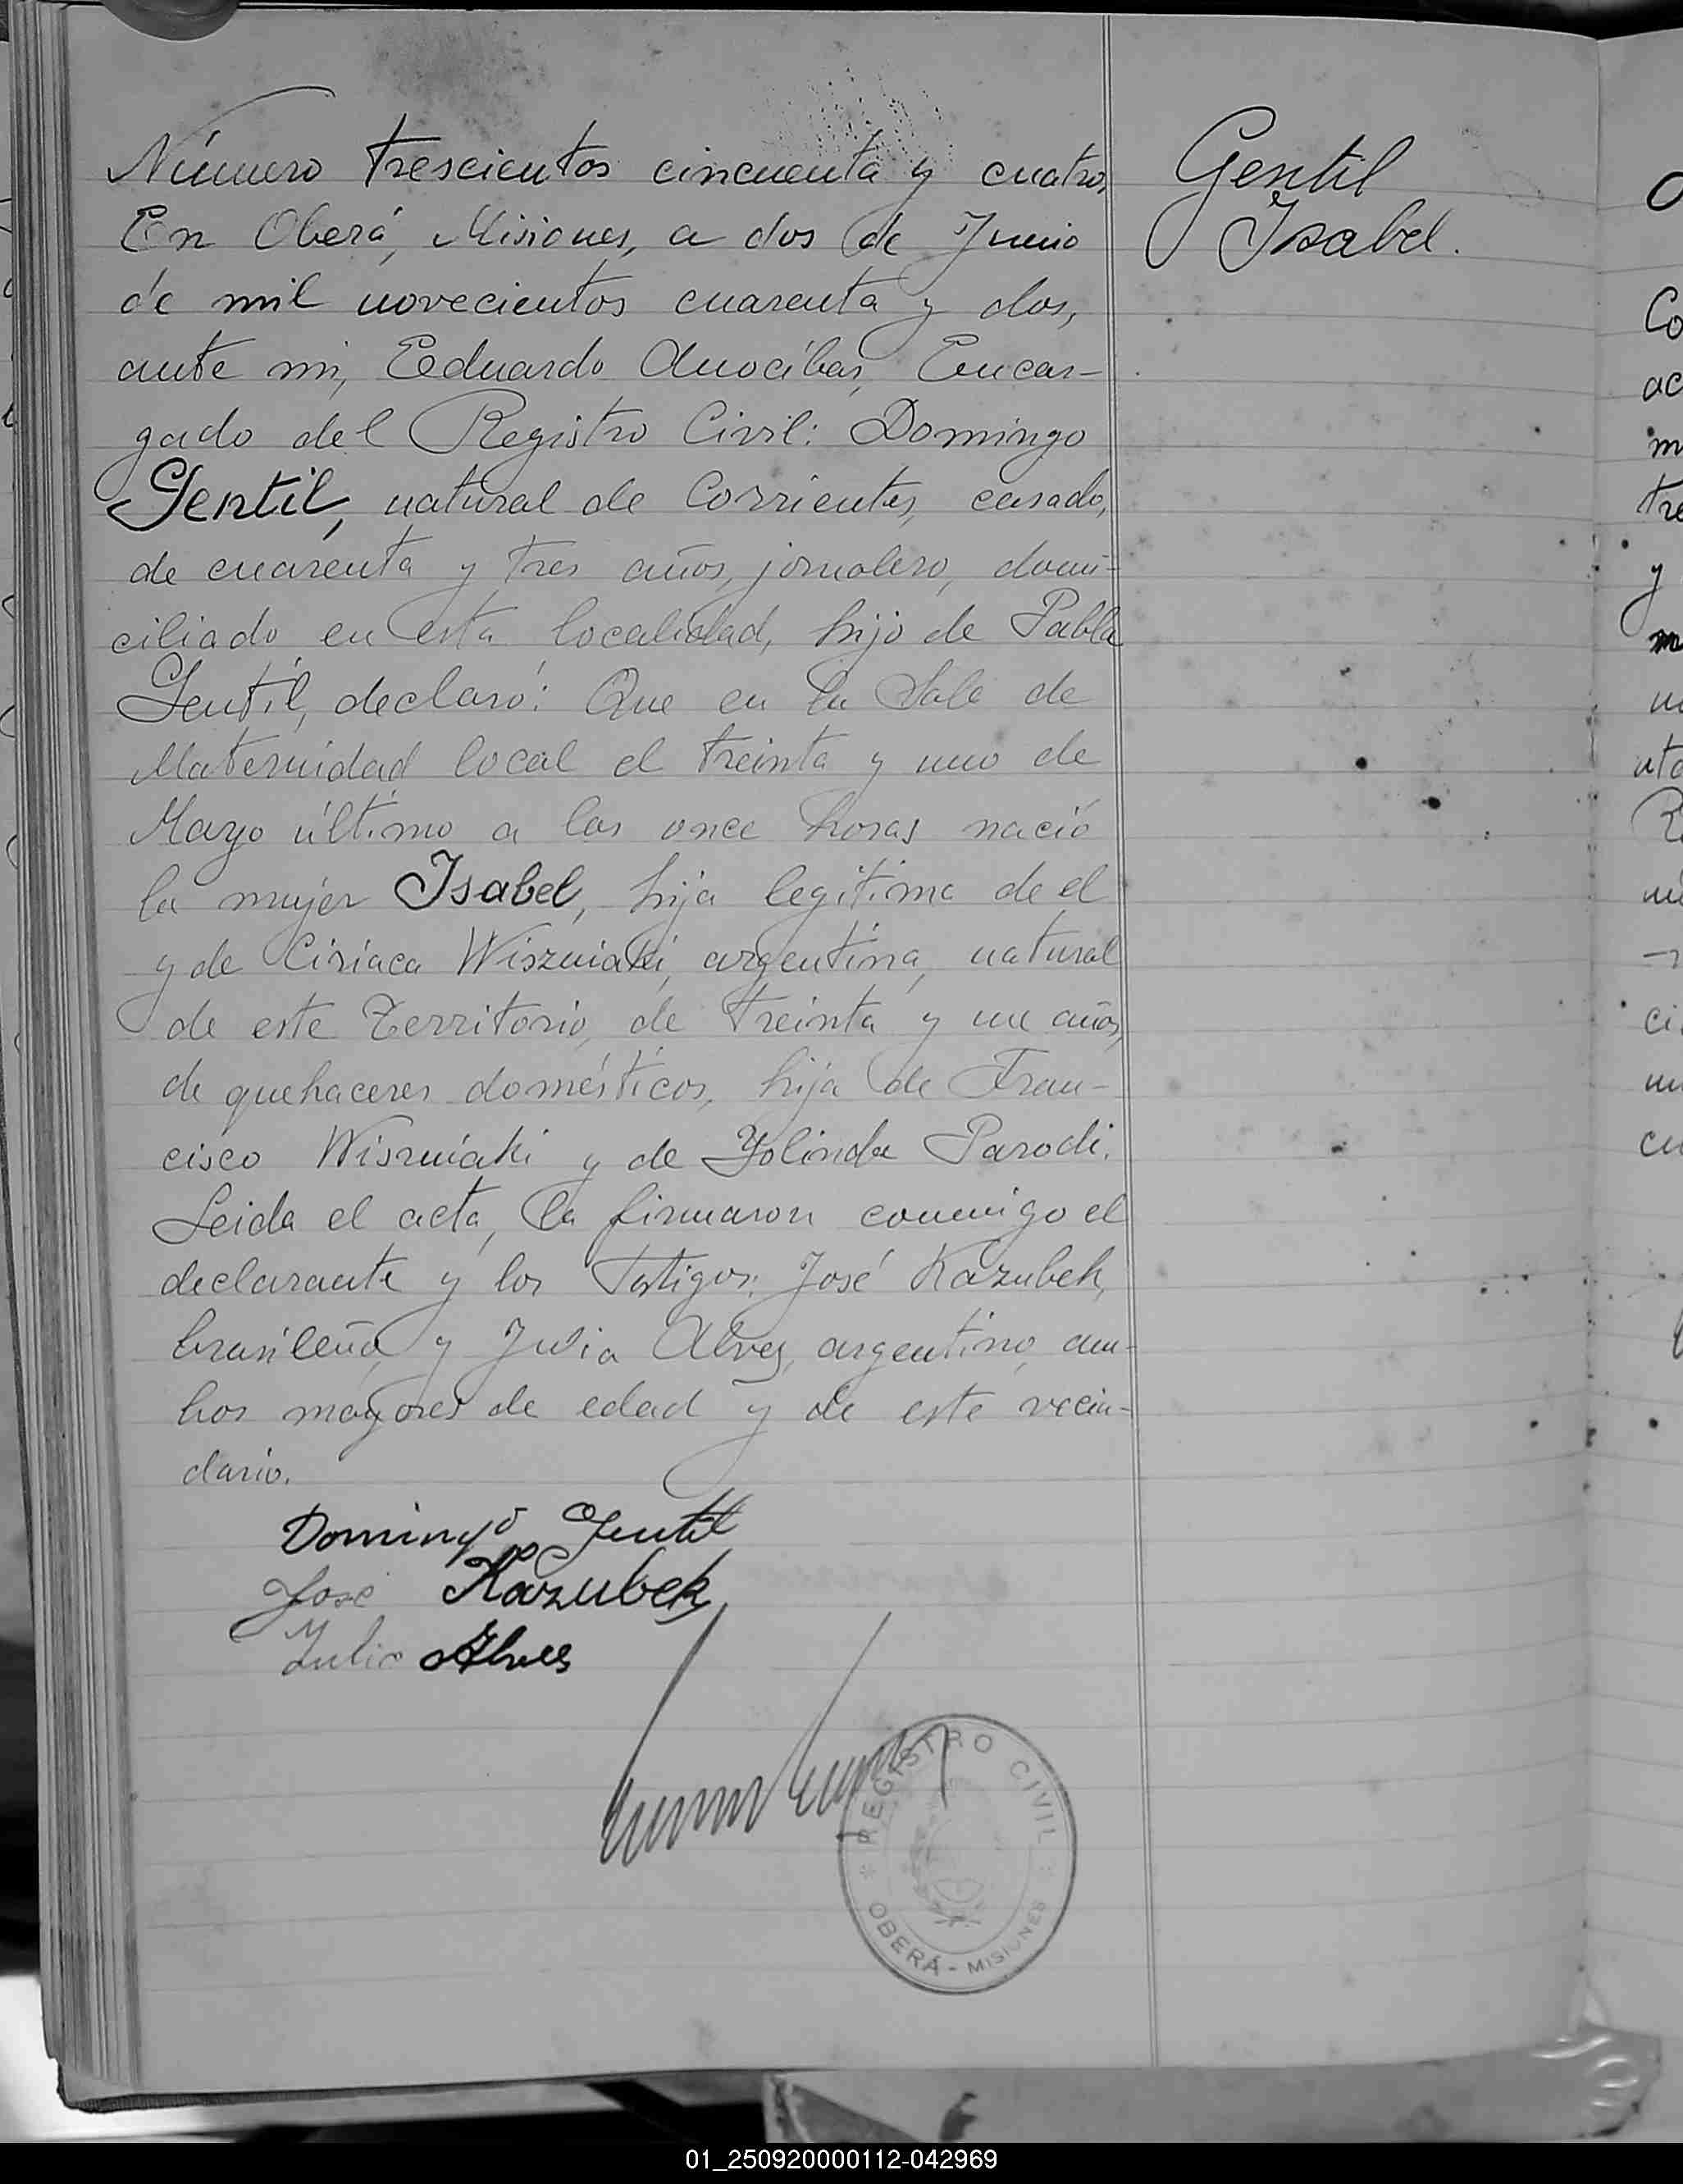 Número trescientos cincuenta y cuatro,
En Oberá, Misiones, a dos de Junio
de mil novecientos cuarenta y dos,
ante mi, Eduardo Anocíbar, Encar-
gado del Registro Civil: Domingo
Gentil, natural de Corrientes, casado,
de cuarenta y tres años, jornalero, domi-
ciliado en esta localidad, hijo de Pabla
Gentil, declaró: Que en la Sala de
Maternidad local el treinta y uno de
Mayo último a las once horas nació
la mujer Isabel, hija legítima de el
y de Ciriaca Wiszniaki, argentina, natural
de este Territorio, de treinta y un años,
de quehaceres domésticos, hija de Fran-
cisco Wiszniaki y de Yolinda Parodi.
Leida el acta, la firmaron conmigo el
declarante y los testigos: José Kazubek,
brasileño, y Julio Alves, argentino, am-
bos mayores de edad y de este vecin-
dario.
Domingo Gentil
José Kazubek
Julio Alves
Gentil
Isabel.
REGISTRO CIVIL
OBERÁ - MISIONES
01_250920000112-042969